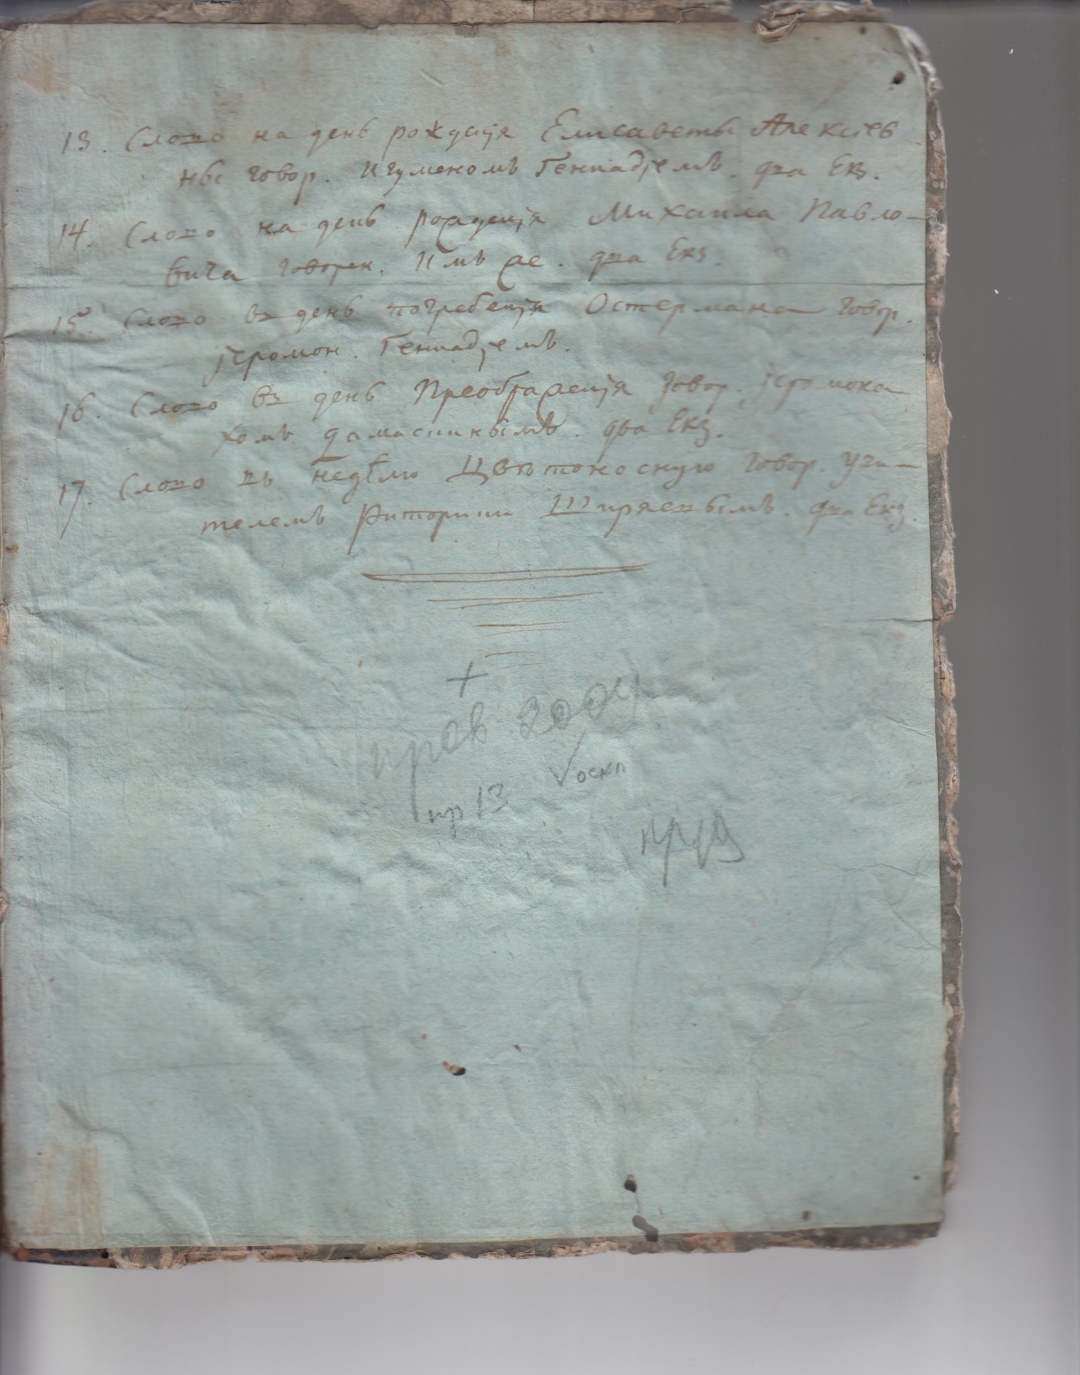 13. Слово на день рождєнія Елисаветы Алексіев
ны говор. Игуменомъ Геннадіемъ. два Екз.
14. Слово на день рожденія Михаила Павло-
вича говорен. Имъ же. два Екз.
15. Слово въ день погребенія Остермана говор.
іеромон. Геннадіемъ.
16. Слово въ день Преображенія говор. іеромона
хомъ Дамаскинымъ. два Екз.
17. Слово въ недѣлю Цвѣтоносную говор. учи-
телемъ Риторики Ширяевымъ. два Екз.
+
пров
пр 13